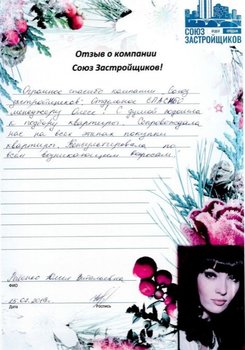 СОЮЗ
ЗАСТРОЙЩИКОВ
Отзыв о компании
Союз Застройщиков!
Огромное спасибо компании „Союз
застройщиков". Отдельное СПАСИБО
менеджеру Олесе! С душой подошла
к подбору квартиры. Сопровождала
нас на всех этапах покупки
квартиры. Консультировала по
всем возникающим вопросам.
Юлия Витальевна
ФИО
Дата
Подпись